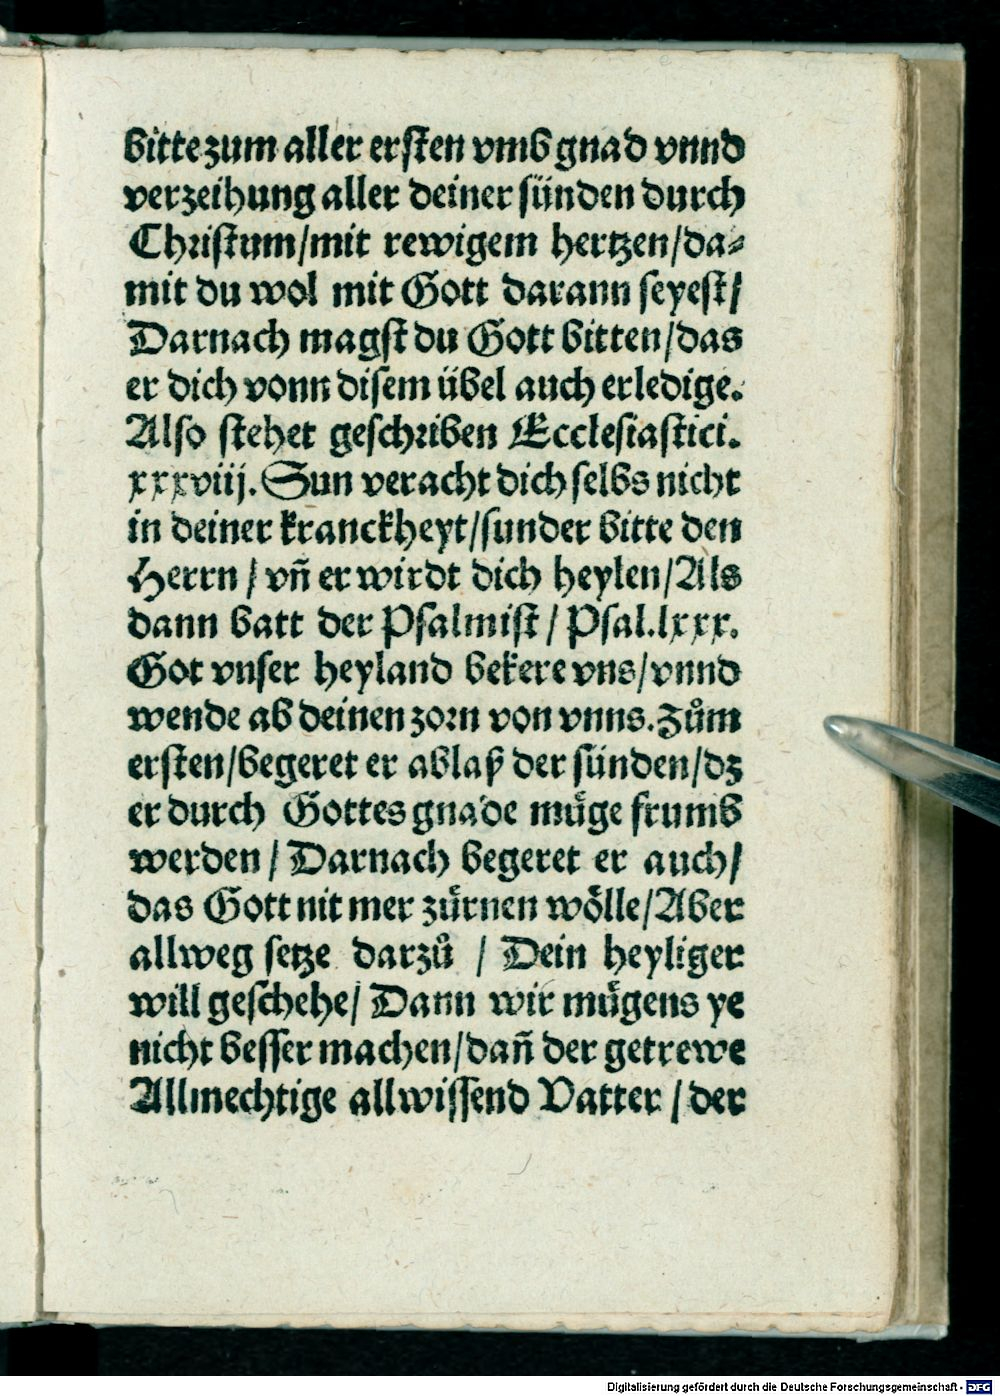 bitte zum aller ersten vmb gnad vnnd
verzeihung aller deiner sünden durch
Christum/mit rewigem hertzen/da⸗
mit du wol mit Gott darann seyest/
Darnach magst du Gott bitten/das
er dich vonn disem übel auch erledige.
Also stehet geschriben Ecclesiastici.
xxxviij. Sun veracht dich selbs nicht
in deiner kranckheyt/sunder bitte den
Herrn / vñ er wirdt dich heylen/Als
dann batt der Psalmist / Psal.lxxx.
Got vnser heyland bekere vns/vnnd
wende ab deinen zorn von vnns. Zům
ersten/begeret er ablaß der sünden/dz
er durch Gottes gnade müge frumb
werden / Darnach begeret er auch/
das Gott nit mer zürnen wölle/Aber
allweg setze darzů / Dein heyliger
will geschehe/ Dann wir mügens ye
nicht besser machen/dañ der getrewe
Allmechtige allwissend Vatter / der
Digitalisierung gefördert durch die Deutsche Forschungsgemeinschaft - DFG